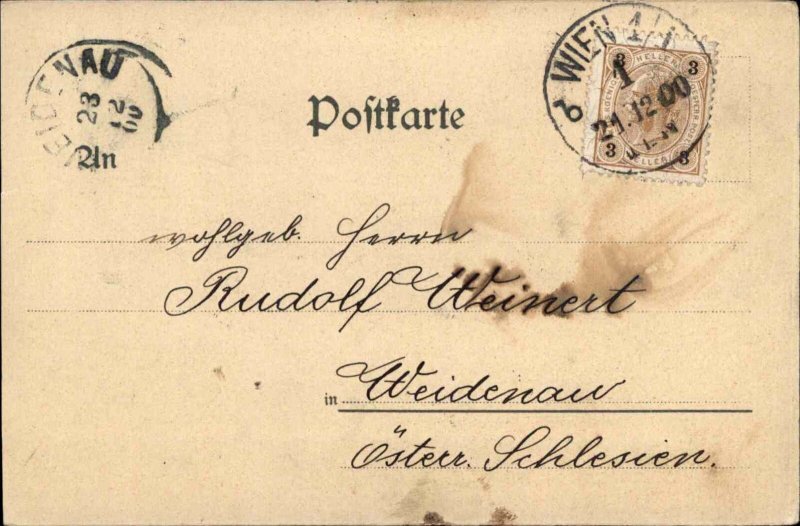 WEIDENAU
23
12
00
WIEN 4/1
1
21.12.00
HELLER
3 3
3 3
HELLER
Postkarte
An
wohlgeb. Herrn
Rudolf Weinert
in Weidenau
Österr. Schlesien.